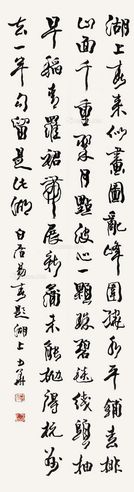 湖上春来似畫圖亂峰圍繞水平鋪松排
山面千重翠月點波心一顆珠碧毯線頭抽
早稻青羅裙帶展新蒲未能拋得杭州
去一半勾留是此湖 白居易春題湖上